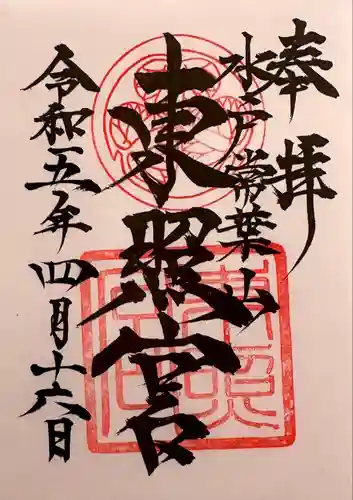 奉拝
水戸常葉山
東照宮
令和五年四月十六日